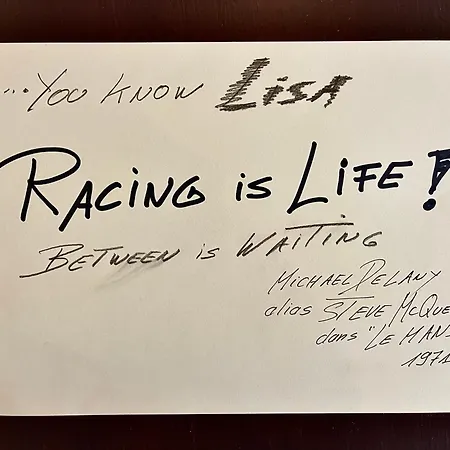 ...You know Lisa
Racing is Life!
Between is Waiting
Michael Delany
alias Steve McQue
dans "Le Mans
1971